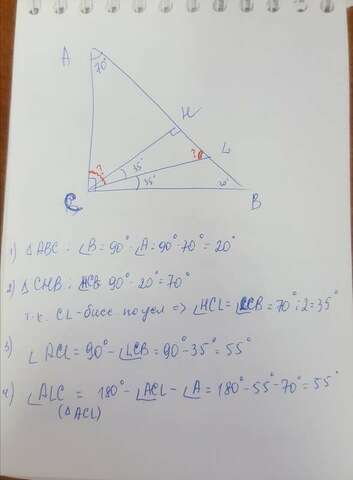 A
70°
H
L
?
?
35°
35°
20°
C
B
1) △ABC: ∠B = 90° - ∠A = 90° - 70° = 20°
2) △CHB: HCB = 90° - 20° = 70°
т.к. CL-бисс по усл => ∠HCL = ∠LCB = 70° : 2 = 35°
3) ∠ACL = 90° - ∠LCB = 90° - 35° = 55°
4) ∠ALC = 180° - ∠ACL - ∠A = 180° - 55° - 70° = 55°
(△ACL)